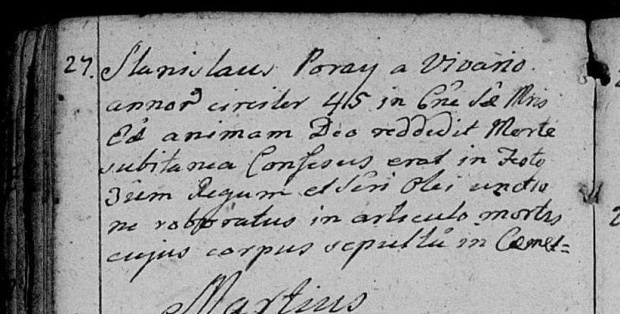 27. Stanislaus Poray a Vivario
annorũ circiter 45 in Cne Sæ Mris
Eæ animam Deo reddidit Morte
subitanea Confesus erat in Festo
3ũm Regum et Sĩri Olei unctio
ne roboratus in articulo mortis
cujus corpus sepultũ in Cæmet=
Martius